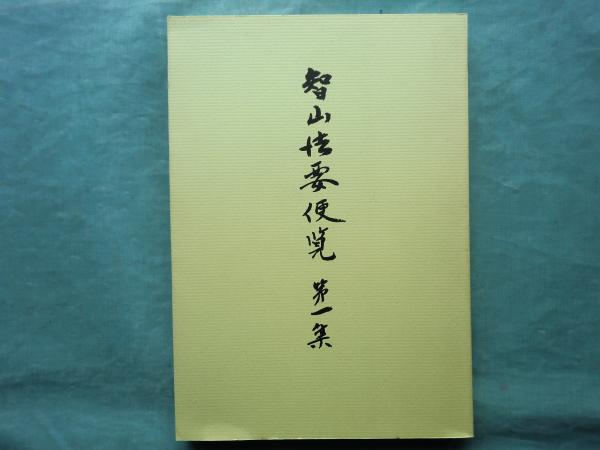 智山法要便覧 第一集